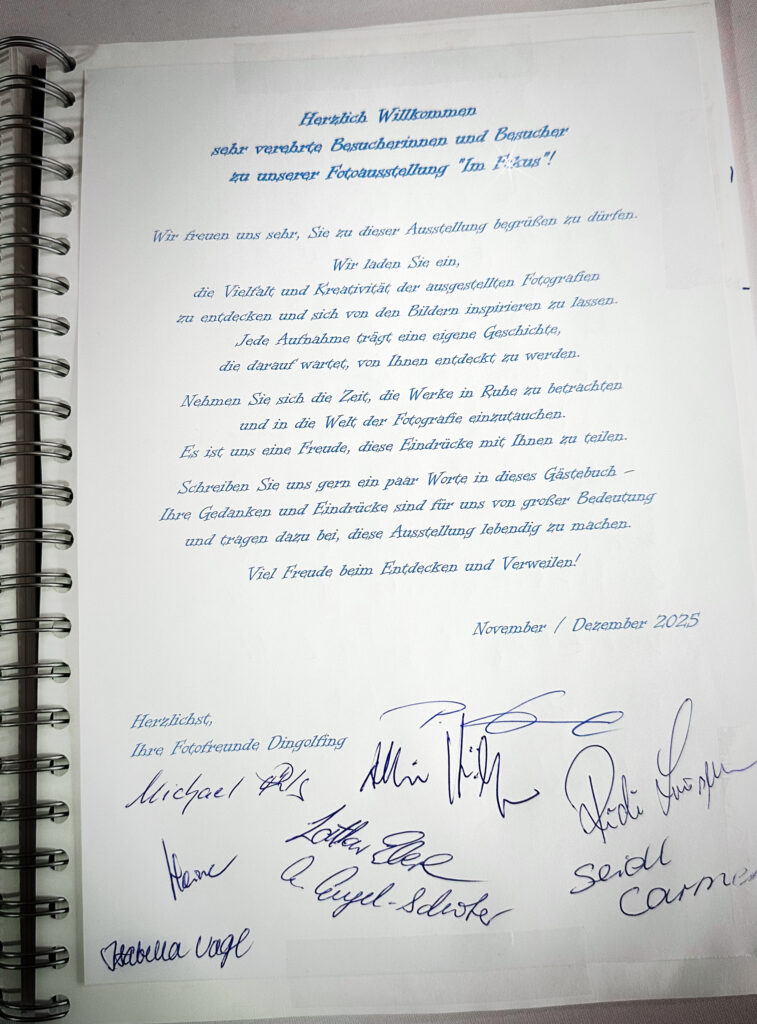 Herzlich Willkommen
sehr verehrte Besucherinnen und Besucher
zu unserer Fotoausstellung "Im Fokus"!
Wir freuen uns sehr, Sie zu dieser Ausstellung begrüßen zu dürfen.
Wir laden Sie ein,
die Vielfalt und Kreativität der ausgestellten Fotografien
zu entdecken und sich von den Bildern inspirieren zu lassen.
Jede Aufnahme trägt eine eigene Geschichte,
die darauf wartet, von Ihnen entdeckt zu werden.
Nehmen Sie sich die Zeit, die Werke in Ruhe zu betrachten
und in die Welt der Fotografie einzutauchen.
Es ist uns eine Freude, diese Eindrücke mit Ihnen zu teilen.
Schreiben Sie uns gern ein paar Worte in dieses Gästebuch –
Ihre Gedanken und Eindrücke sind für uns von großer Bedeutung
und tragen dazu bei, diese Ausstellung lebendig zu machen.
Viel Freude beim Entdecken und Verweilen!
November / Dezember 2025
Herzlichst,
Ihre Fotofreunde Dingolfing
Michael
Rudi
Lothar
Seidl
Isabella Vogl